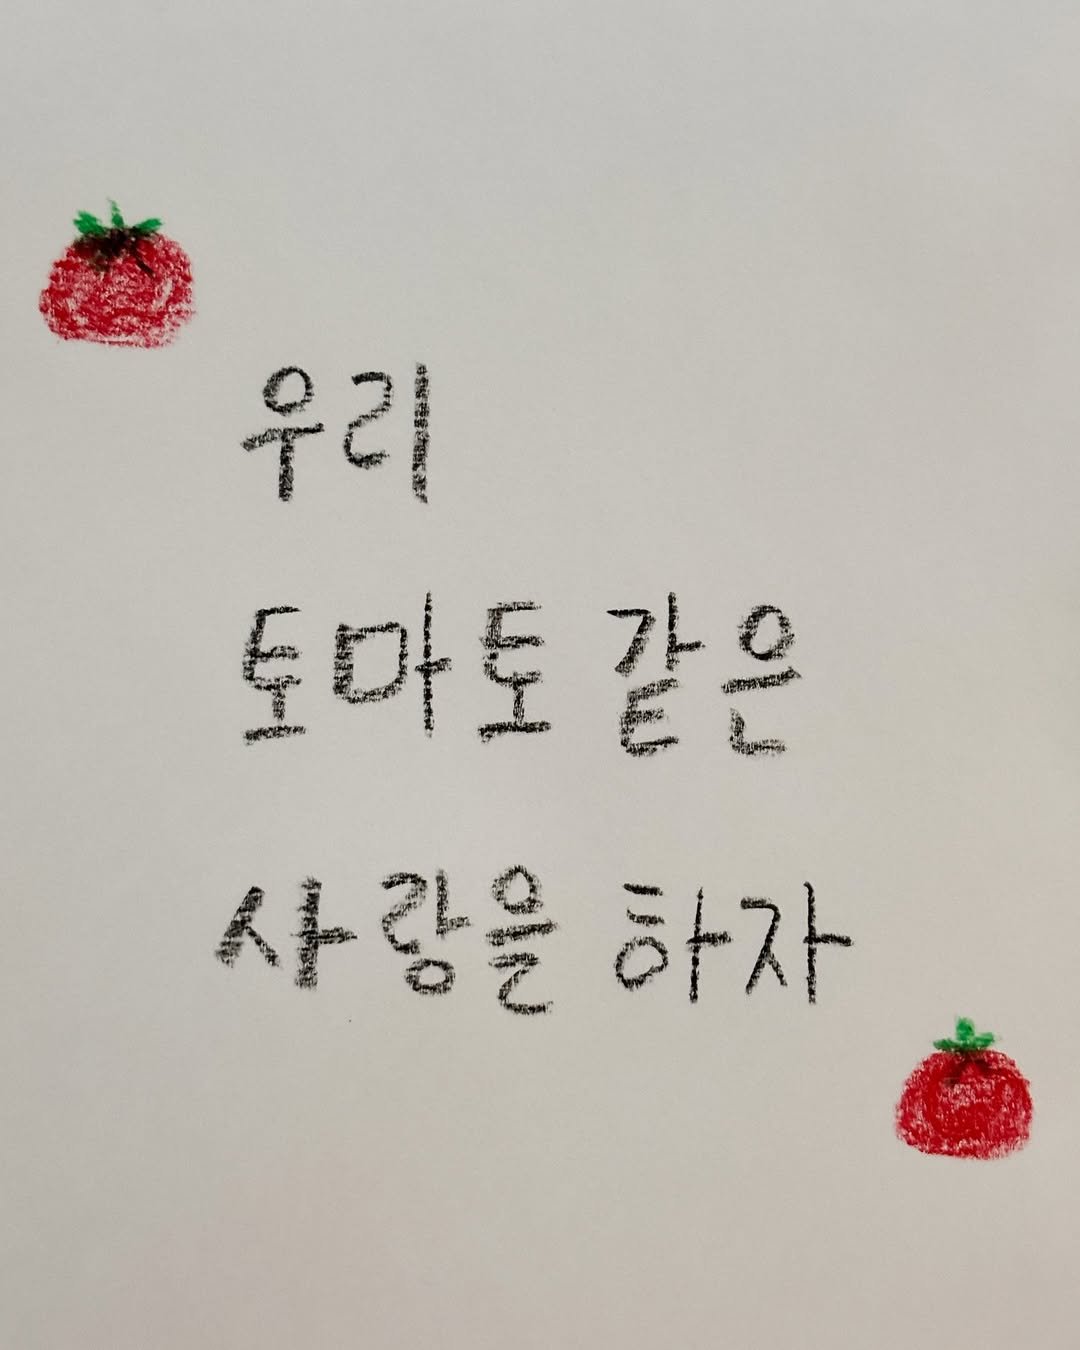 우리
토마토 같은
사랑을 하자